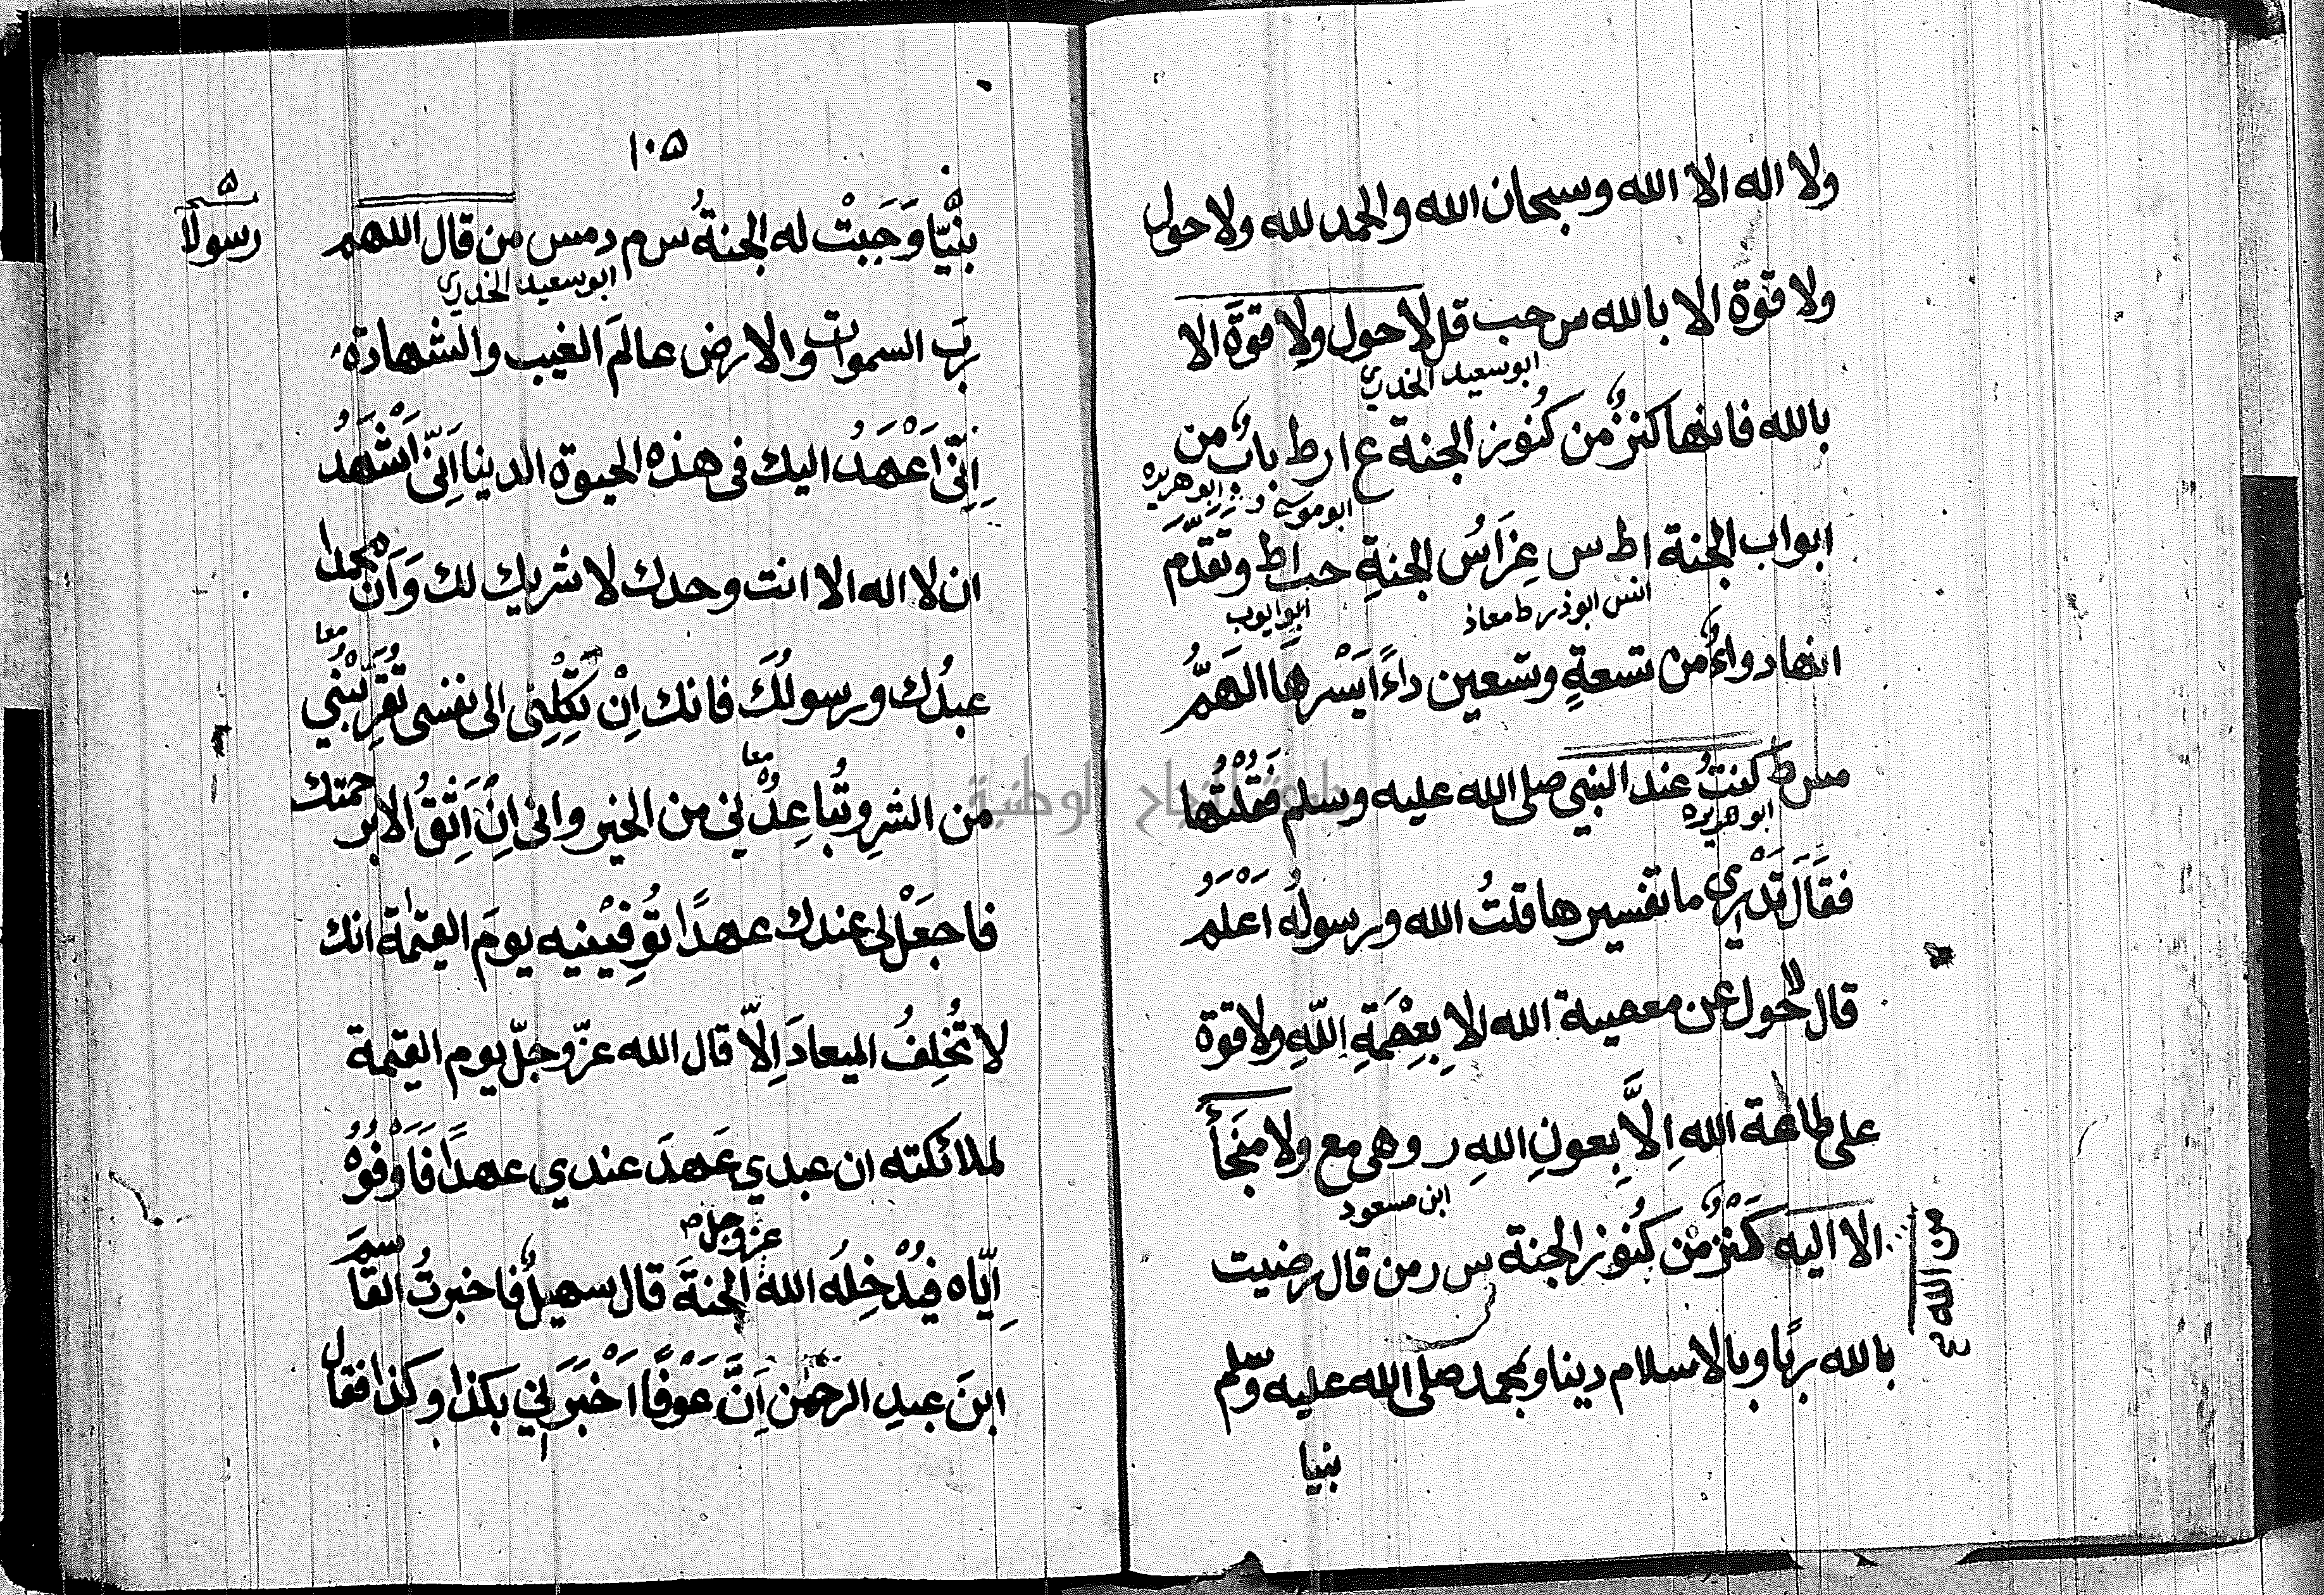 ولا اله الا الله وسبحان الله والحمد لله ولا حول
ولا قوة الا بالله س حب قل لا حول ولا قوة الا
ابو سعيد الخدري
بالله فانها كنز من كنوز الجنة ع ا ر ط باب من
ابو موسى ابو هريره
ابواب الجنة ا ط س غراس الجنة حب ا ط وتقدم
انس ابو ذر ط معاذ
ابو ايوب
انها دواء من تسعة وتسعين داءً ايسرها الهم
مس ط كنت عند النبي صلى الله عليه وسلم فقلتها
ابو هريره
فقال تدري ما تفسيرها قلت الله ورسوله اعلم
قال لا حول عن معصية الله الا بعصمة الله ولا قوة
على طاعة الله الا بعون الله ر وهي مع ولا منجأ
ابن مسعود
من الله
الا اليه كنز من كنوز الجنة س ر من قال رضيت
بالله ربا وبالاسلام دينا وبمحمد صلى الله عليه وسلم
نبيا
۱۰۵
رسولا
نبيّا وَجَبَتْ له الجنةُ س م د مس من قال اللهم
ابو سعيد الخدري
ربَّ السموات والارض عالمَ الغيب والشهادة
اِنّي اَعْهَدُ اليك في هذه الحيوة الدنيا اَنّي اَشْهَدُ
ان لا اله الا انت وحدك لا شريك لك وَاَنَّ محمدا
عبدُك ورسولُكَ فانك اِنْ تَكِلْنِي الى نفسي تُقَرِّبْنِي
معا
من الشر وتُباعِدْني من الخير واني اِنْ اَثِقُ الا برحمتك
معا
فاجعَلْ لي عندك عهدًا تُوَفِّينيه يومَ القيمة انك
لا تُخلِفُ الميعادَ اِلّا قال الله عزّ وجلّ يوم القيمة
لملائكته ان عبدي عَهِدَ عندي عهدًا فَاَوْفُوْهُ
اِيّاه فيُدْخِلُه الله عز وجل الجنةَ قال سهيلٌ فاخبرتُ القاسمَ
ابنَ عبدِ الرحمن اَنَّ عَوْفًا اَخْبَرَنِي بكذا وكذا فقال